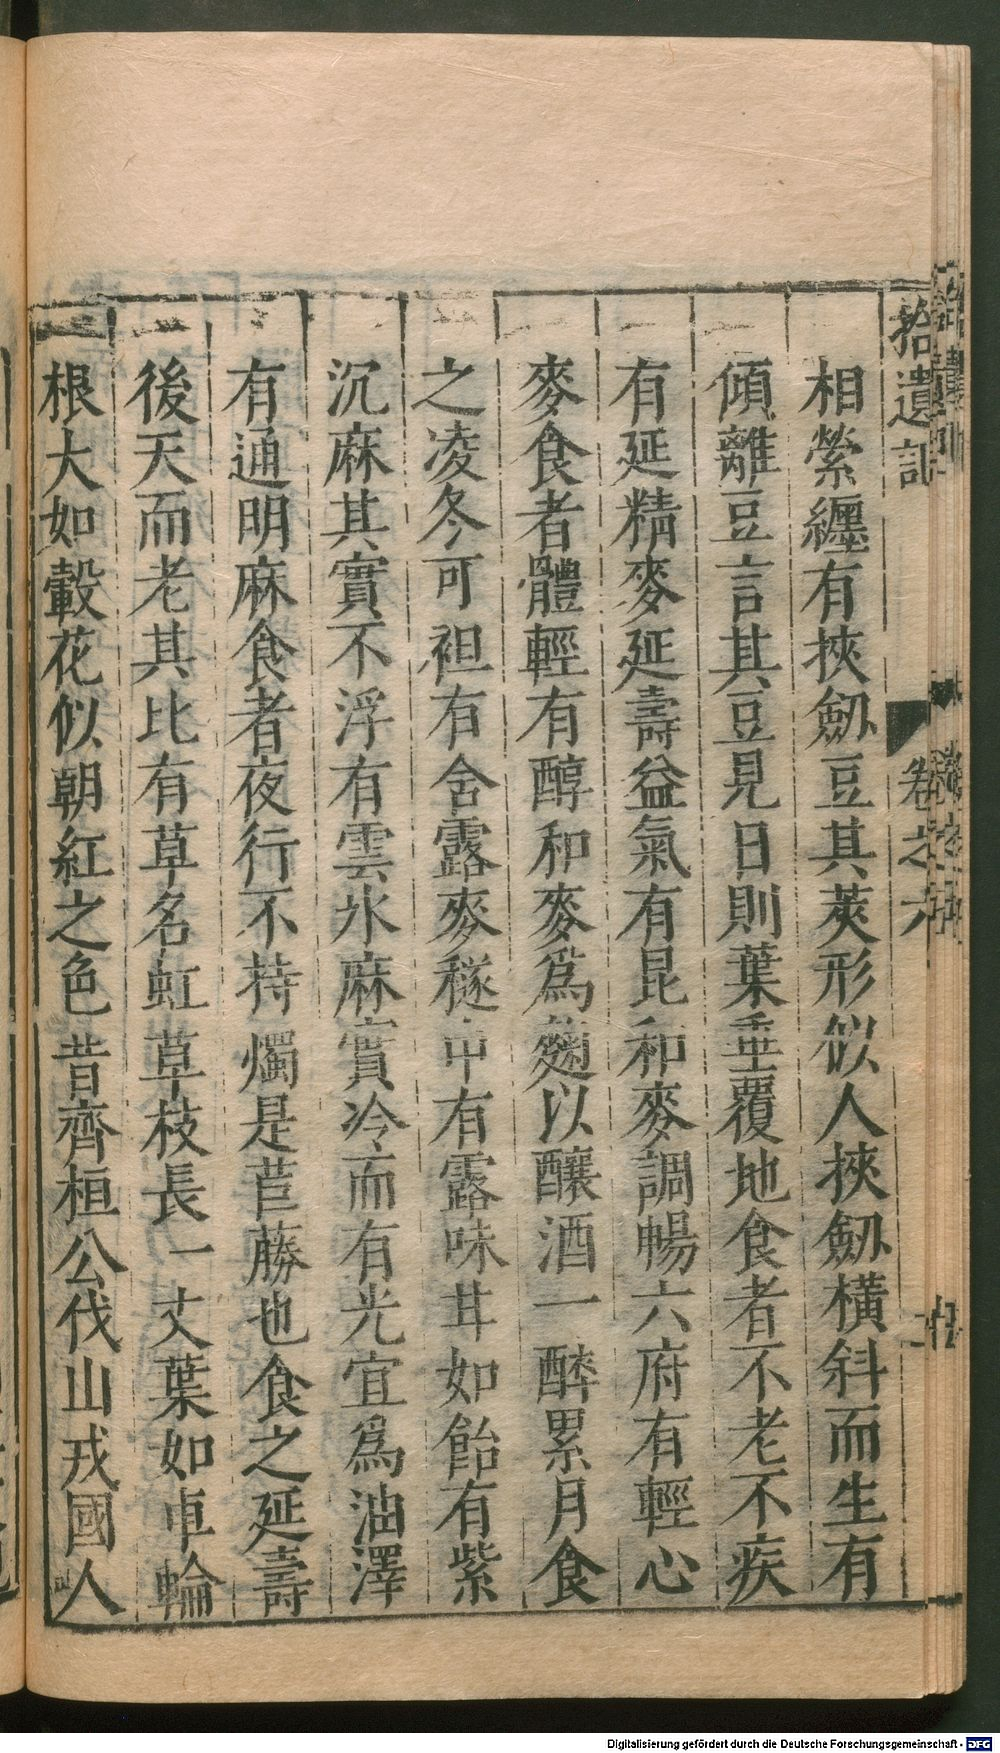 拾遺記
卷之六
二
相縈纏有挾劒豆其莢形似人挾劒橫斜而生有
傾離豆言其豆見日則葉垂覆地食者不老不疾
有延精麥延壽益氣有昆和麥調暢六府有輕心
麥食者體輕有醇和麥爲麴以釀酒一醉累月食
之凌冬可袒有含露麥穟中有露味甘如飴有紫
沉麻其實不浮有雲氷麻實冷而有光宜爲油澤
有通明麻食者夜行不持燭是苣藤也食之延壽
後天而老其比有草名虹草枝長一丈葉如車輪
根大如轂花似朝紅之色昔齊桓公伐山戎國人
Digitalisierung gefördert durch die Deutsche Forschungsgemeinschaft - DFG